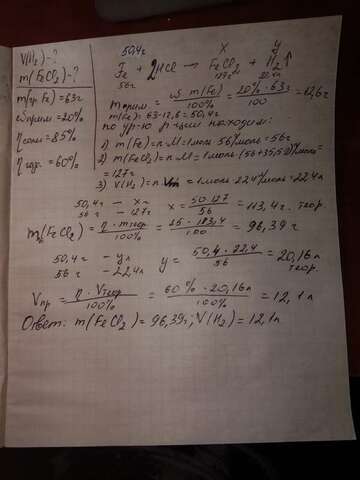 V(H₂) - ?
m(FeCl₂) - ?
m(гр Fe) = 63г
ω прим = 20%
η соли = 85%
η газа = 60%
50,4г x y
Fe + 2HCl → FeCl₂ + H₂↑
56г 127г 22,4л
m прим. = ω·m(Fe) / 100% = 20%·63г / 100 = 12,6г
m(Fe) = 63-12,6 = 50,4г
по ур-ю р-ции находим:
1) m(Fe) = n·M = 1моль·56г/моль = 56г
2) m(FeCl₂) = n·M = 1моль·(56+35,5·2)г/моль =
= 127г
3) V(H₂) = n·Vm = 1моль·22,4л/моль = 22,4л
50,4г - x г x = 50,4·127 / 56 = 113,4г. теор.
56 г - 127г
m пр(FeCl₂) = η·m теор / 100% = 85·113,4 / 100 = 96,39г
50,4г - y л y = 50,4·22,4 / 56 = 20,16л теор.
56г - 22,4л
V пр = η·V теор / 100% = 60%·20,16л / 100% = 12,1л
Ответ: m(FeCl₂) = 96,39г; V(H₂) = 12,1л